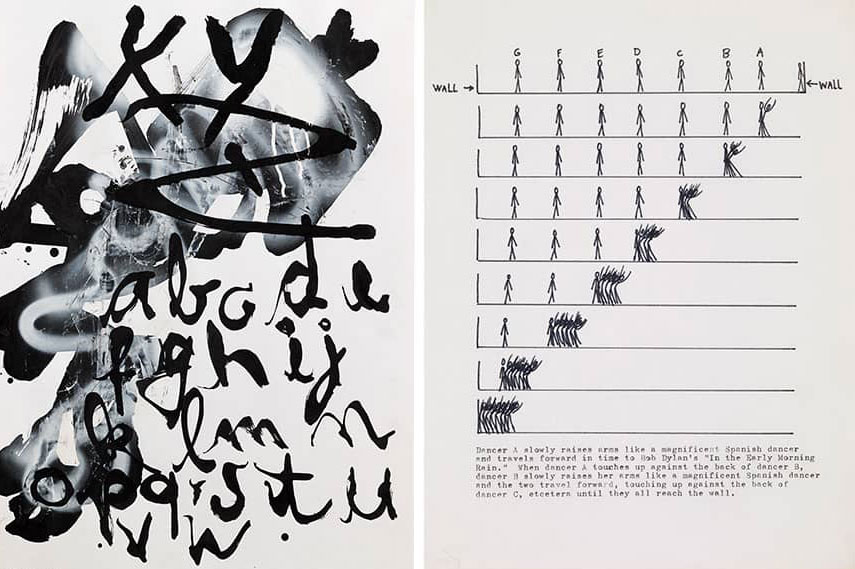 X Y
Z
a b c d e
f g h i j
k l m n
o p q r s t u
v w
G F E D C B A
WALL → ← WALL
Dancer A slowly raises arms like a magnificent Spanish dancer
and travels forward in time to Bob Dylan's "In the Early Morning
Rain." When dancer A touches up against the back of dancer B,
dancer B slowly raises her arms like a magnificent Spanish dancer
and the two travel forward, touching up against the back of
dancer C, etcetera until they all reach the wall.